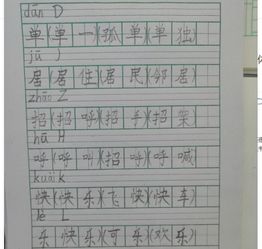 dān D
单(单一)(孤单)(单独)
jū J
居(居住)(居民)(邻居)
zhāo Z
招(招呼)(招手)(招架)
hū H
呼(呼叫)(招呼)(呼喊)
kuài k
快(快乐)(飞快)(快车)
lè L
乐(快乐)(可乐)(欢乐)